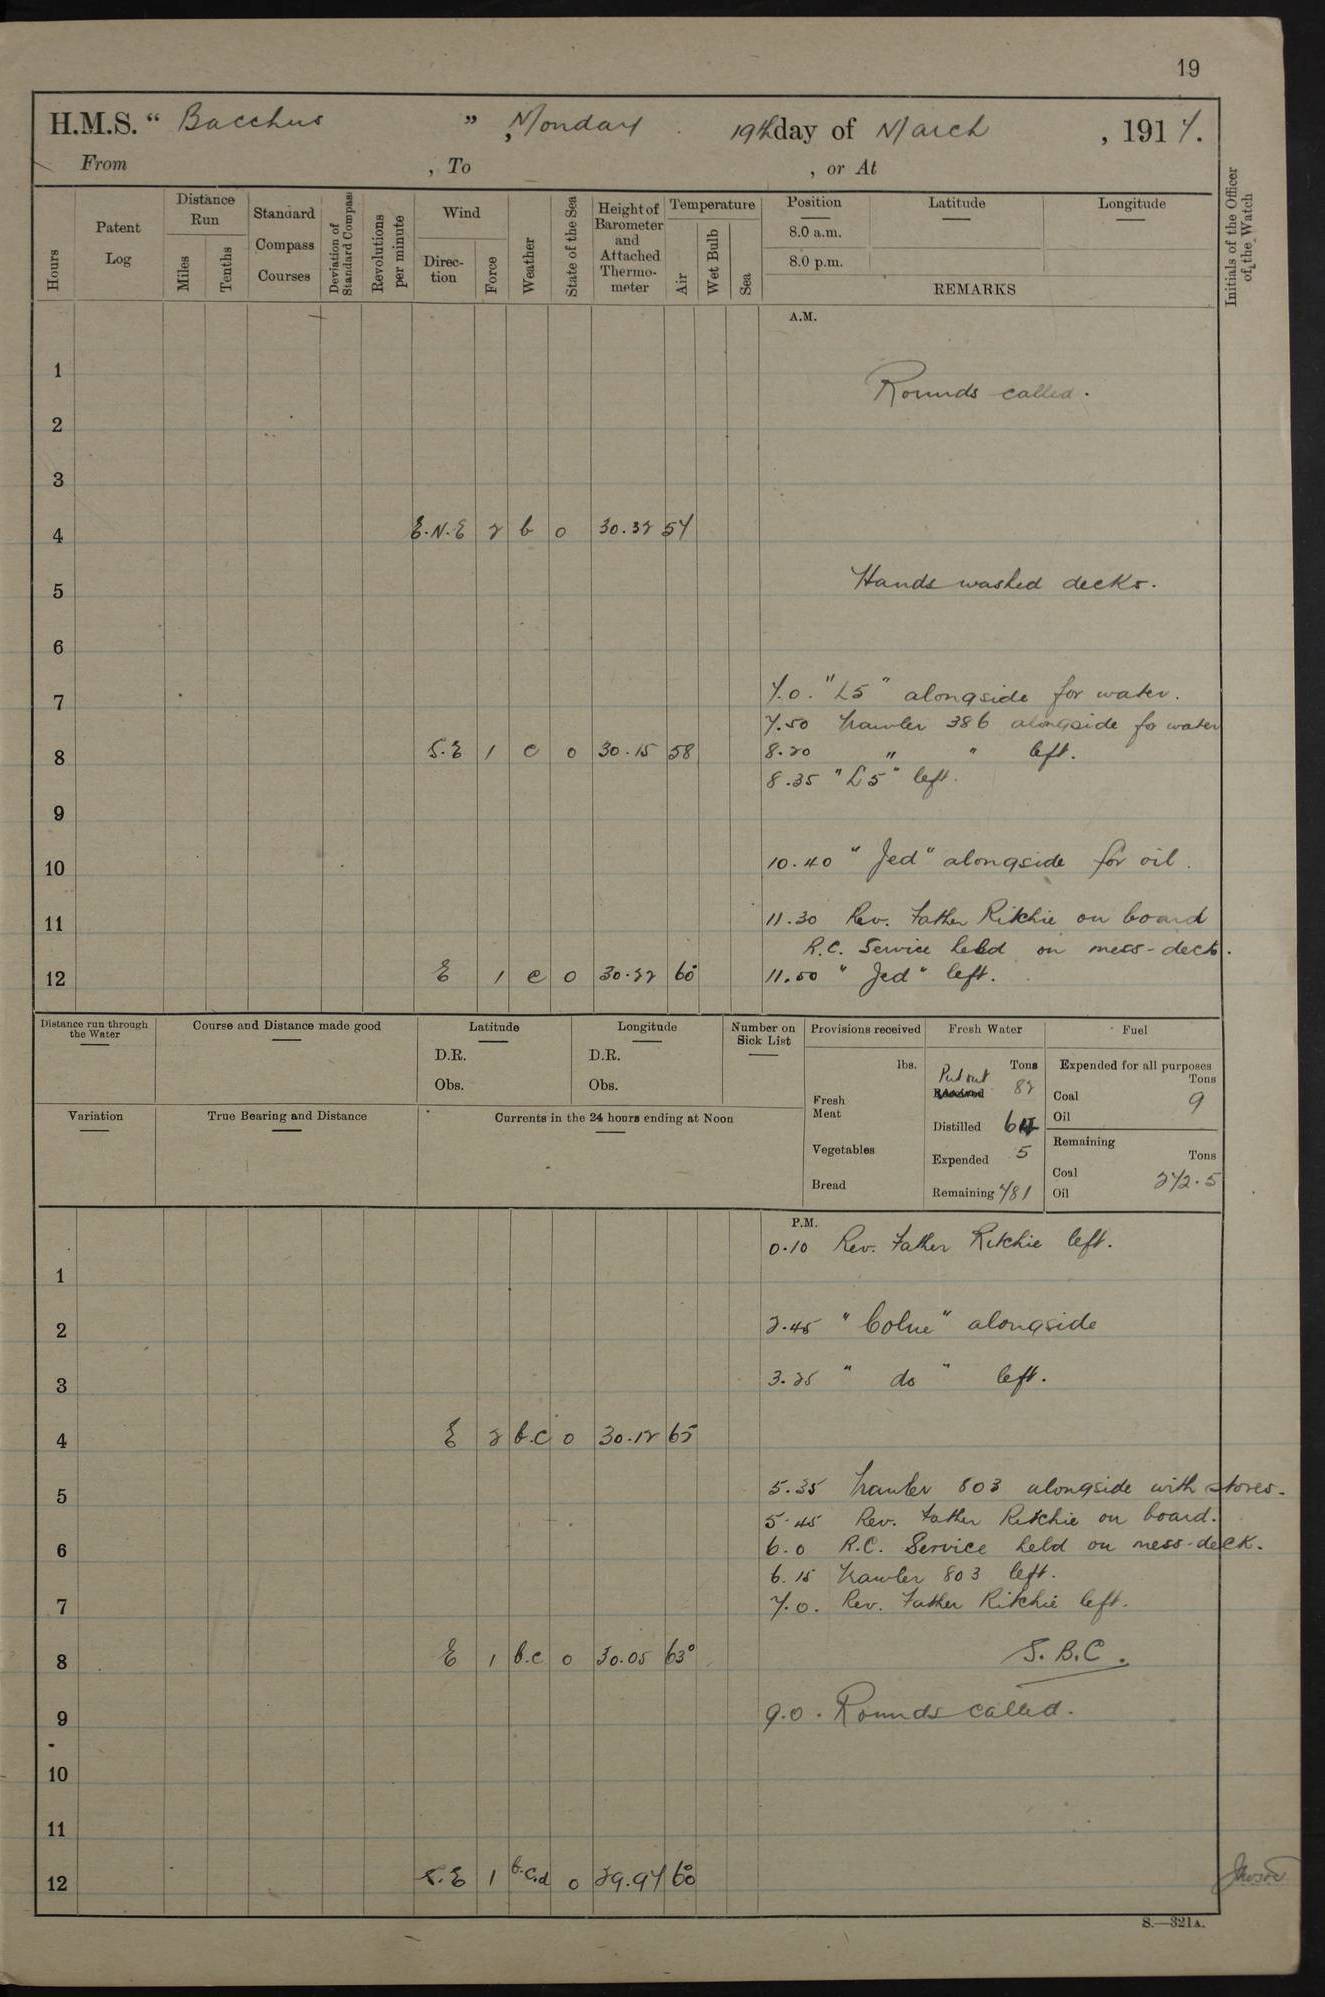 19
H.M.S. “ Bacchus ” , Monday 19th day of March , 1917.
From , To , or At
Hours
Patent Log
Distance Run
Miles
Tenths
Standard Compass Courses
Deviation of Standard Compass
Revolutions per minute
Wind
Direction
Force
Weather
State of the Sea
Height of Barometer and Attached Thermometer
Temperature
Air
Wet Bulb
Sea
Position
8.0 a.m.
8.0 p.m.
Latitude
Longitude
REMARKS
Initials of the Officer of the Watch
A.M.
1
Rounds called.
2
3
4 E.N.E 2 b 0 30.32 57
5 Hands washed decks.
6
7 7.0. "L5" alongside for water.
7.50 Trawler 386 alongside fo water
8 S.E 1 c 0 30.15 58 8.20 " " left.
8.35 "L5" left.
9
10 10.40 "Jed" alongside for oil.
11 11.30 Rev. Father Ritchie on board
R.C. Service held on mess-deck.
12 E 1 c 0 30.22 60° 11.50 "Jed" left.
Distance run through the Water
Course and Distance made good
Latitude
D.R.
Obs.
Longitude
D.R.
Obs.
Number on Sick List
Variation
True Bearing and Distance
Currents in the 24 hours ending at Noon
Provisions received
lbs.
Fresh Meat
Vegetables
Bread
Fresh Water
Tons
Put out 82
Distilled
Expended 5
Remaining 781
Fuel
Expended for all purposes
Tons
Coal 9
Oil
Remaining
Tons
Coal 272.5
Oil
P.M.
0.10 Rev. Father Ritchie left.
1
2 2.45 "Colne" alongside
3 3.25 " do " left.
4 E 2 b.c 0 30.12 65
5 5.35 Trawler 803 alongside with stores.
5.45 Rev. Father Ritchie on board.
6 6.0 R.C. Service held on mess-deck.
6.15 Trawler 803 left.
7 7.0. Rev. Father Ritchie left.
8 E 1 b.c 0 30.05 63° S.B.C.
9 9.0. Rounds called.
10
11
12 S.E 1 b.c.d 0 29.97 60°
S.—321A.